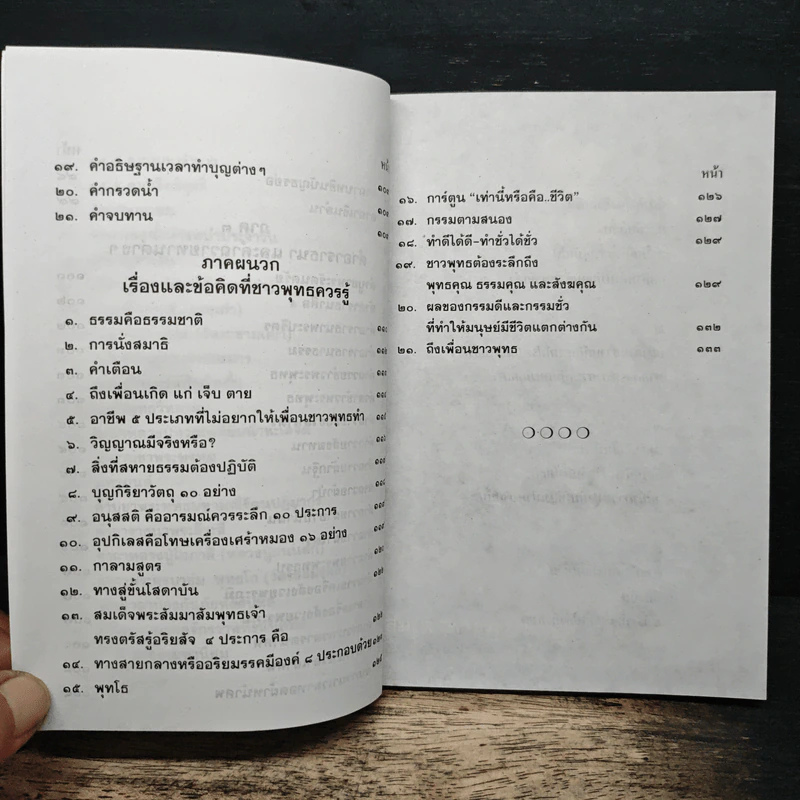 ๑๙. คำอธิษฐานเวลาทำบุญต่างๆ
๒๐. คำกรวดน้ำ
๒๑. คำจบทาน
ภาคผนวก
เรื่องและข้อคิดที่ชาวพุทธควรรู้
๑. ธรรมคือธรรมชาติ
๒. การนั่งสมาธิ
๓. คำเตือน
๔. ถึงเพื่อนเกิด แก่ เจ็บ ตาย
๕. อาชีพ ๕ ประเภทที่ไม่อยากให้เพื่อนชาวพุทธทำ
๖. วิญญาณมีจริงหรือ?
๗. สิ่งที่สหายธรรมต้องปฏิบัติ
๘. บุญกิริยาวัตถุ ๑๐ อย่าง
๙. อนุสสติ คืออารมณ์ควรระลึก ๑๐ ประการ
๑๐. อุปกิเลสคือโทษเครื่องเศร้าหมอง ๑๖ อย่าง
๑๑. กาลามสูตร
๑๒. ทางสู่ขั้นโสดาบัน
๑๓. สมเด็จพระสัมมาสัมพุทธเจ้า
ทรงตรัสรู้อริยสัจ ๔ ประการ คือ
๑๔. ทางสายกลางหรืออริยมรรคมีองค์ ๘ ประกอบด้วย
๑๕. พุทโธ
หน้า
๑๖. การ์ตูน “เท่านี้หรือคือ..ชีวิต” ๑๒๖
๑๗. กรรมตามสนอง ๑๒๗
๑๘. ทำดีได้ดี-ทำชั่วได้ชั่ว ๑๒๙
๑๙. ชาวพุทธต้องระลึกถึง
พุทธคุณ ธรรมคุณ และสังฆคุณ ๑๒๙
๒๐. ผลของกรรมดีและกรรมชั่ว
ที่ทำให้มนุษย์มีชีวิตแตกต่างกัน ๑๓๒
๒๑. ถึงเพื่อนชาวพุทธ ๑๓๓